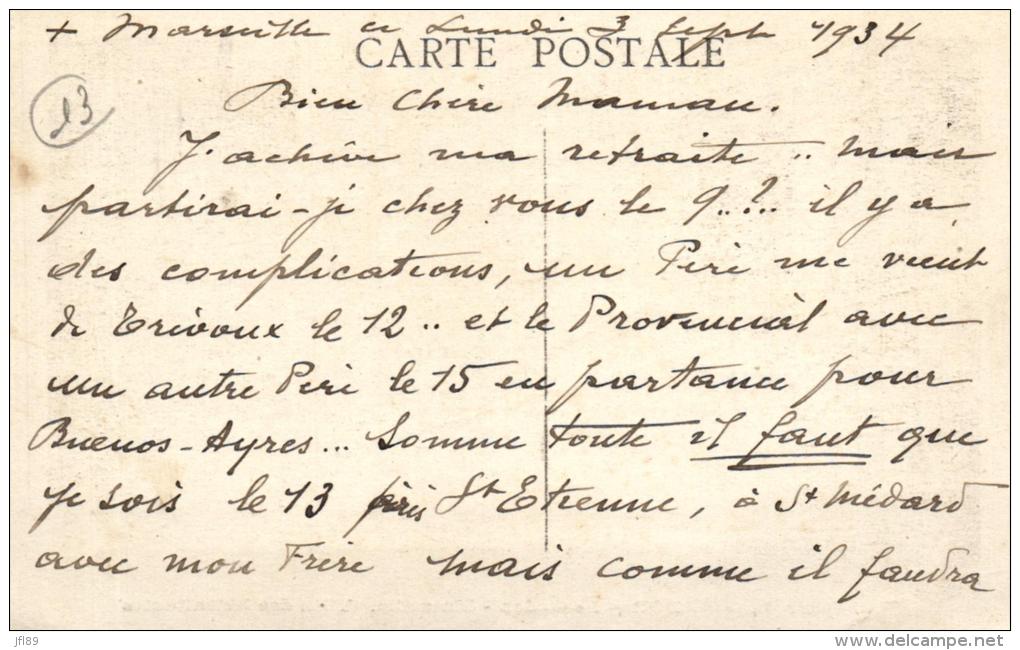 + Marseille ce Lundi 3 Sept 1934
CARTE POSTALE
13
Bien chère Maman.
J'achève ma retraite .. mais
partirai-je chez vous le 9..?.. il y a
des complications, un Père me vient
de Trévoux le 12 .. et le Provincial avec
un autre Père le 15 en partance pour
Buenos-Ayres... Somme toute il faut que
je sois le 13 près St Etienne, à St Médard
avec mon Frère mais comme il faudra
jf89
www.delcampe.net